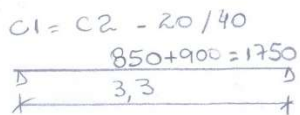 C1 = C2 - 20/40
850+900=1750
3,3